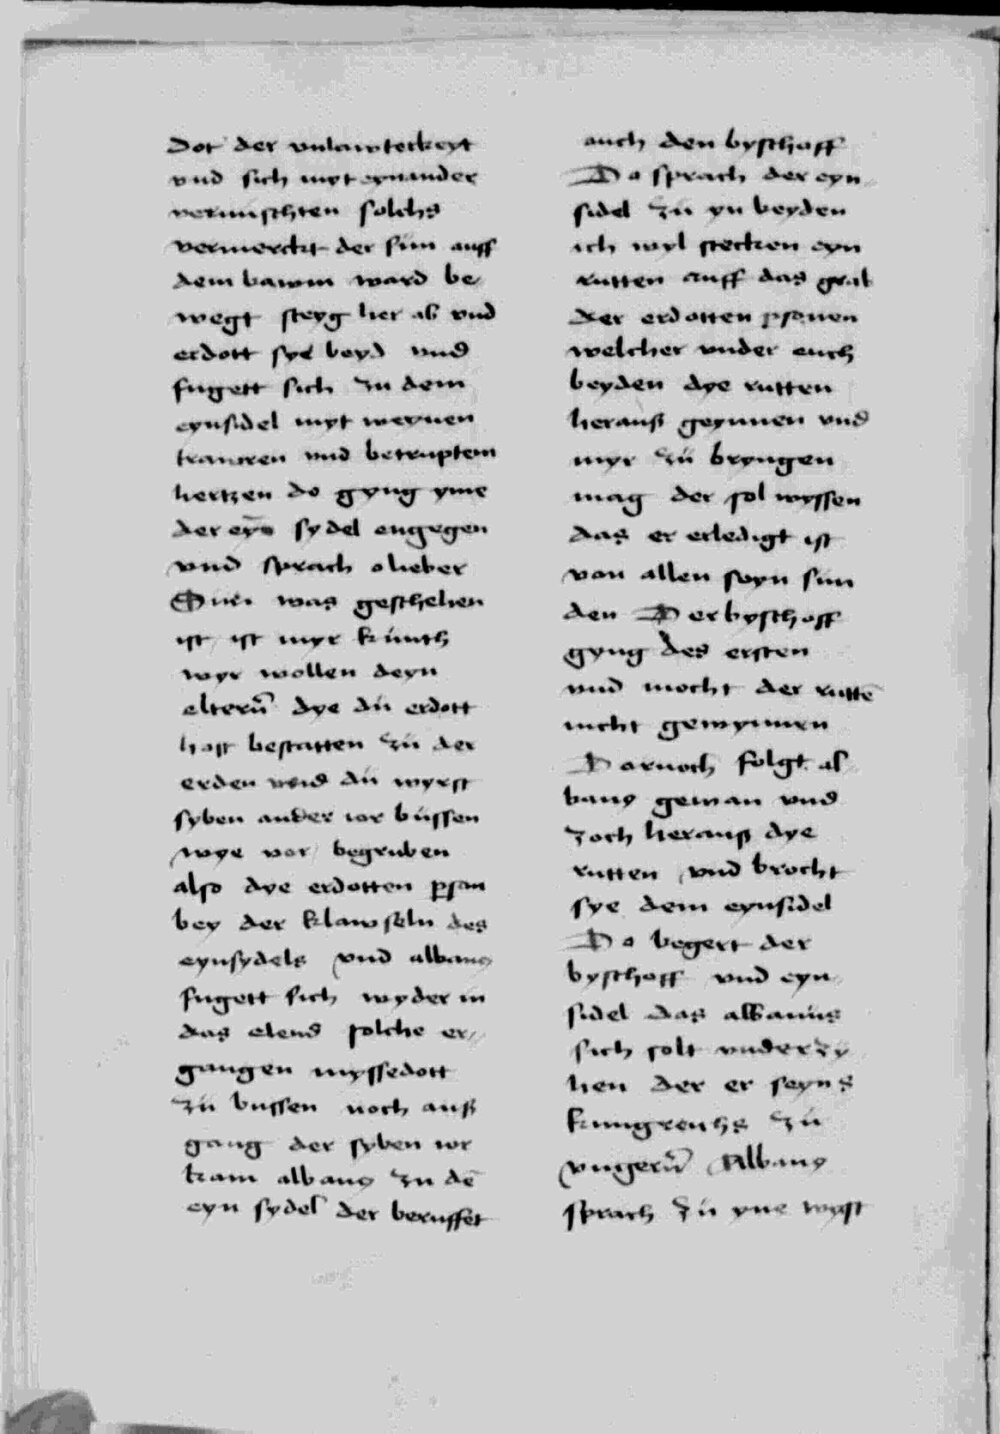 dot der vnlawterkeyt
vnd sich myt eynander
vermischten solchs
vermerckt der sun auff
dem bawm ward be
wegt steyg her ab vnd
erdott sye beyd vnd
fugett sich zu dem
eynsidel myt weynen
trawren vnd betruptem
hertzen do gyng yme
der eyn sydel engegen
vnd sprach o lieber
was geschehen
ist ist myr kunth
wyr wollen deyn
elterñ dye du erdott
hast bestatten zu der
erden vnd du wyrst
syben ander ior bussen
wye vor begruben
also dye erdotten pson
bey der klawseln des
eynsydels vnd albanꝰ
fugett sich wyder in
das elend solche er
gangen myssedott
zu bussen noch auß
gang der syben ior
kam albanꝰ zu dē
eyn sydel der beruffet
auch den byschoff
Do sprach der eyn
sidel zu yn beyden
ich wyl stecken eyn
rutten auff das grab
der erdotten psonen
welcher vnder euch
beyden dye rutten
herauß geynnen vnd
myr zu bryngen
mag der sol wyssen
das er erledigt ist
von allen seyn sun
den Der byschoff
gyng des ersten
vnd mocht der ruttē
nicht gewynnen
Darnoch folgt al
banꝰ gewan vnd
zoch herauß dye
rutten vnd brocht
sye dem eynsidel
Do begert der
byschoff vnd eyn
sidel das albanus
sich solt vnderzy
hen der er seyns
kungreichs zu
vngerñ Albanꝰ
sprach zu yne wyst